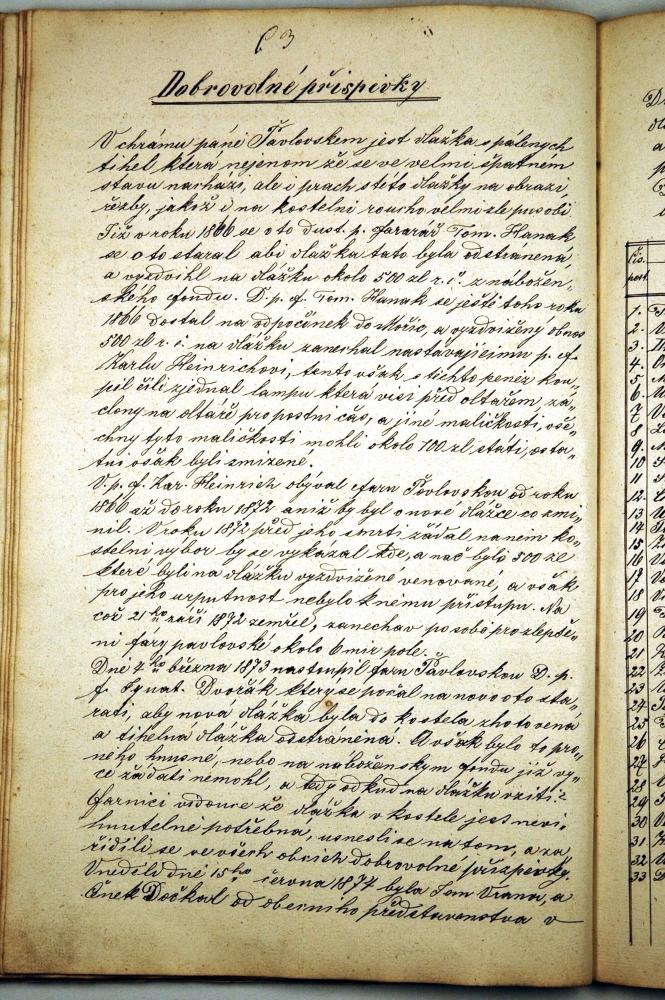 63
Dobrovolné příspěvky
V chrámu páně Pavlovskem jest dlažka s pálenych
tihel která nejenom že se ve velmi špatném
stavu nachází, ale i prach s této dlažky na obrazi
řezby, jakož i na kostelní roucho velmi zle pusobí
Již v roku 1866 se o to dust. p. fararář Tom. Hanak
se o to staral abi dlažka tato byla odstranená,
a vyzdvihl na dlážku okolo 500 zl r. č. z nábožen-
ského fondu. D. p. f. Tom. Hanak se ještě toho roka
1866 dostal na odpočinek do Mořic, a vyzdvižený obnos
500 zl r. č. na dlážku zanechal nastávajícimu p. f.
Karlu Heinrichovi, tento však s tichto peněz kou-
pil čili zjednal lampu která visí před oltařem, zá-
clony na oltáře pro postní čas, a jiné maličkosti, vše-
chny tyto maličkosti mohli okolo 100 zl státi, osta-
tni však byli zmizené.
V. p. f. Kar. Heinrich obýval faru Pavlovskou od roku
1866 až do roku 1872 aniž by byl o nové dlážce co zmi-
nil. V roku 1872 před jeho smrti žádal na nem ko-
stelní vybor by se vykázal kde, a nač bylo 500 zl
které byli na dlážku vyzdvižené venované, a však
pro jeho urputnost nebylo k nému přístupu. Na
což 21ho září 1872 zemřel, zanechav po sobě pro zlepše-
ní fary pavlovské okolo 6 mir pole.
Dne 4ho března 1873 nastoupil faru Pavlovskou D. p.
f. Ignat. Dvořák ktery se počal na novo oto sta-
rati, aby nová dlážka byla do kostela zhotovená
a tihelna dlažka odstráněná. A však bylo to pro
ného hnusné, nebo na náboženskym fondu již vy-
ce žádati nemohl, a tedy odkud na dlážku vziti?
Farnici vidouce že dlážka v kostele jest nevi-
hnutelné potřebná, usneslise na tom, a za
řídili se ve všech obcich dobrovolné přizpěvky.
V neděli dné 15ho června 1874 byla Jan Vrana, a
Čenek Dočkal od obecniho představenstva v
Čís.
post.
1.
2.
3.
4.
5.
6.
7
8
9.
10
11
12.
13
14
15
16
17
18
19
20
21
22
23
24
25
26
27
28
29
30
31
32
33